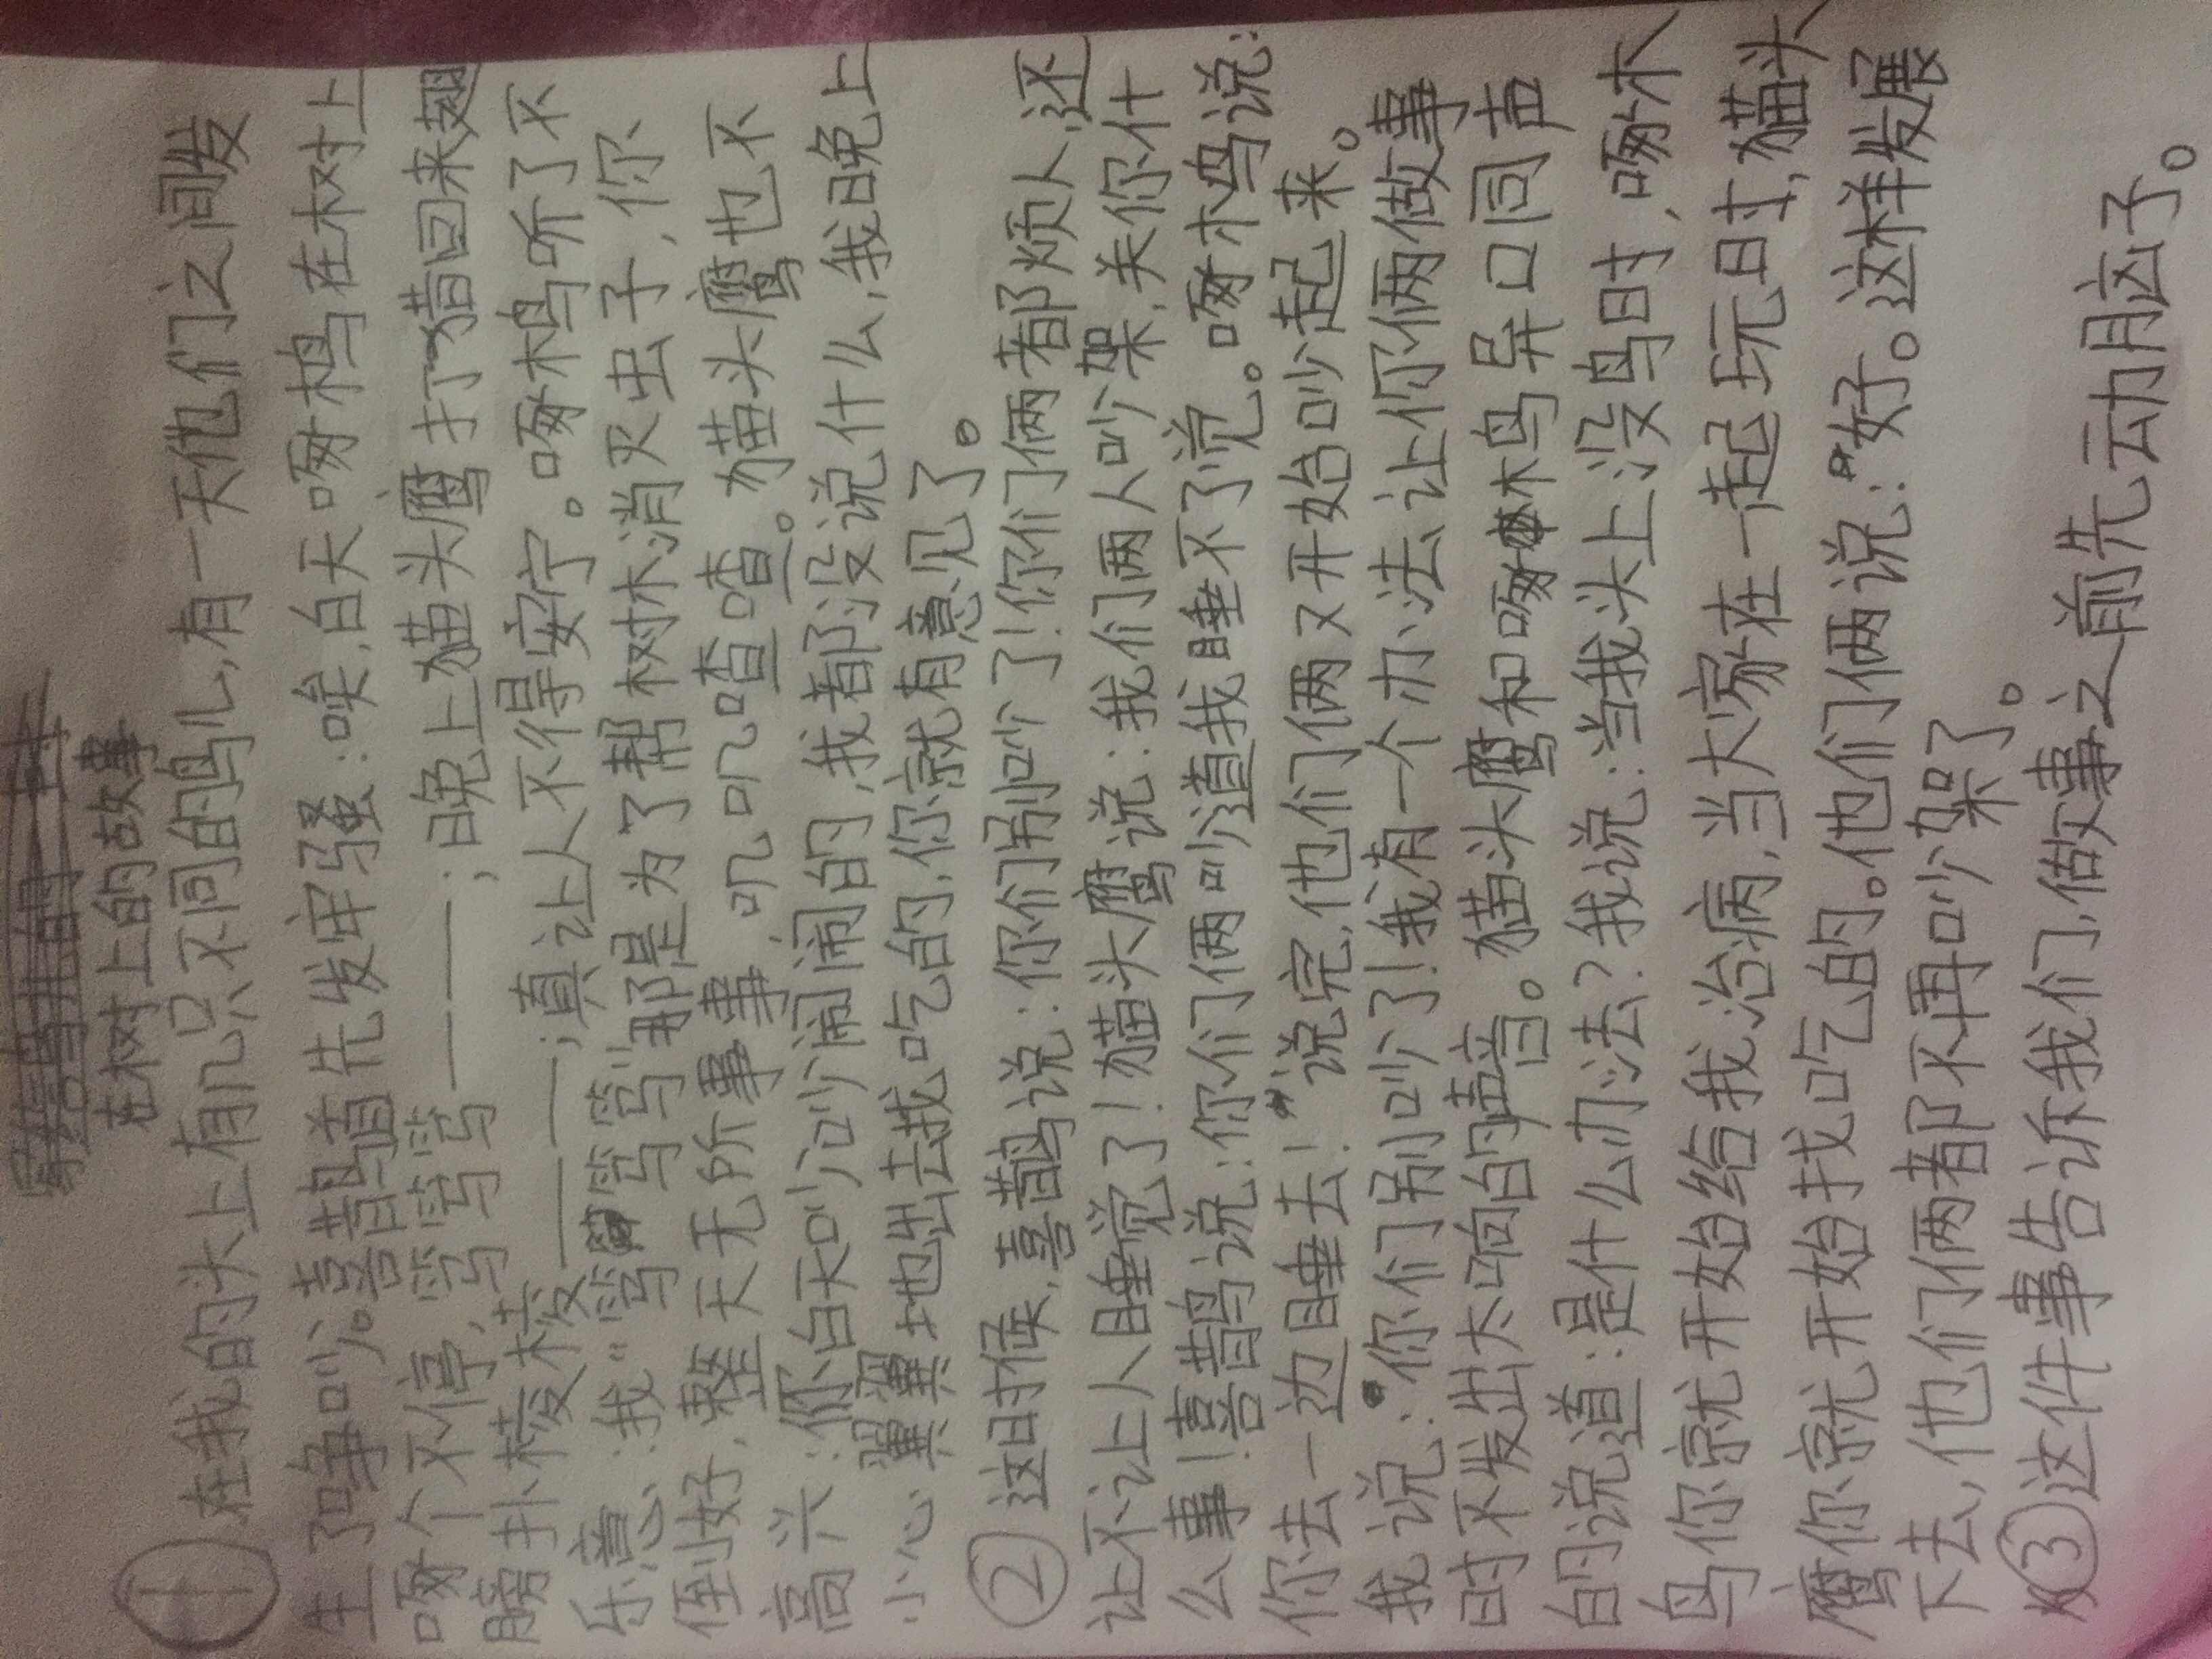 在树上的故事
① 在我的头上有几只不同的鸟儿,有一天他们之间发
生了争吵。喜鹊首先发牢骚:唉,白天啄木鸟在树上
啄个不停,笃笃笃笃———;晚上猫头鹰打了猎回来翅
膀扑棱棱———;真让人不得安宁。啄木鸟听了不
乐意:我"笃笃笃"那是为了帮树木消灭虫子,你
倒好,整天无所事事,叽叽喳喳。猫头鹰也不
高兴:你白天吵吵闹闹的,我都没说什么,我晚上
小心翼翼地出去找吃的,你就有意见了。
② 这时候,喜鹊说:你们别吵了!你们俩都烦人,还
让不让人睡觉了!猫头鹰说:我们两人吵架,关你什
么事!喜鹊说:你们俩吵道我睡不了觉。啄木鸟说:
你去一边睡去!"说完,他们俩又开始吵起来。
我说:"你们别吵了!我有一个办法让你俩做事
时不发出大响的声音。猫头鹰和啄木鸟异口同声
的说道:是什么办法?我说:当我头上没鸟时,啄木
鸟你就开始给我治病,当大家在一起玩时,猫头
鹰你就开始找吃的。他们俩说:"好。这样发展
下去,他们俩都不再吵架了。
③ 这件事告诉我们,做事之前先动脑子。